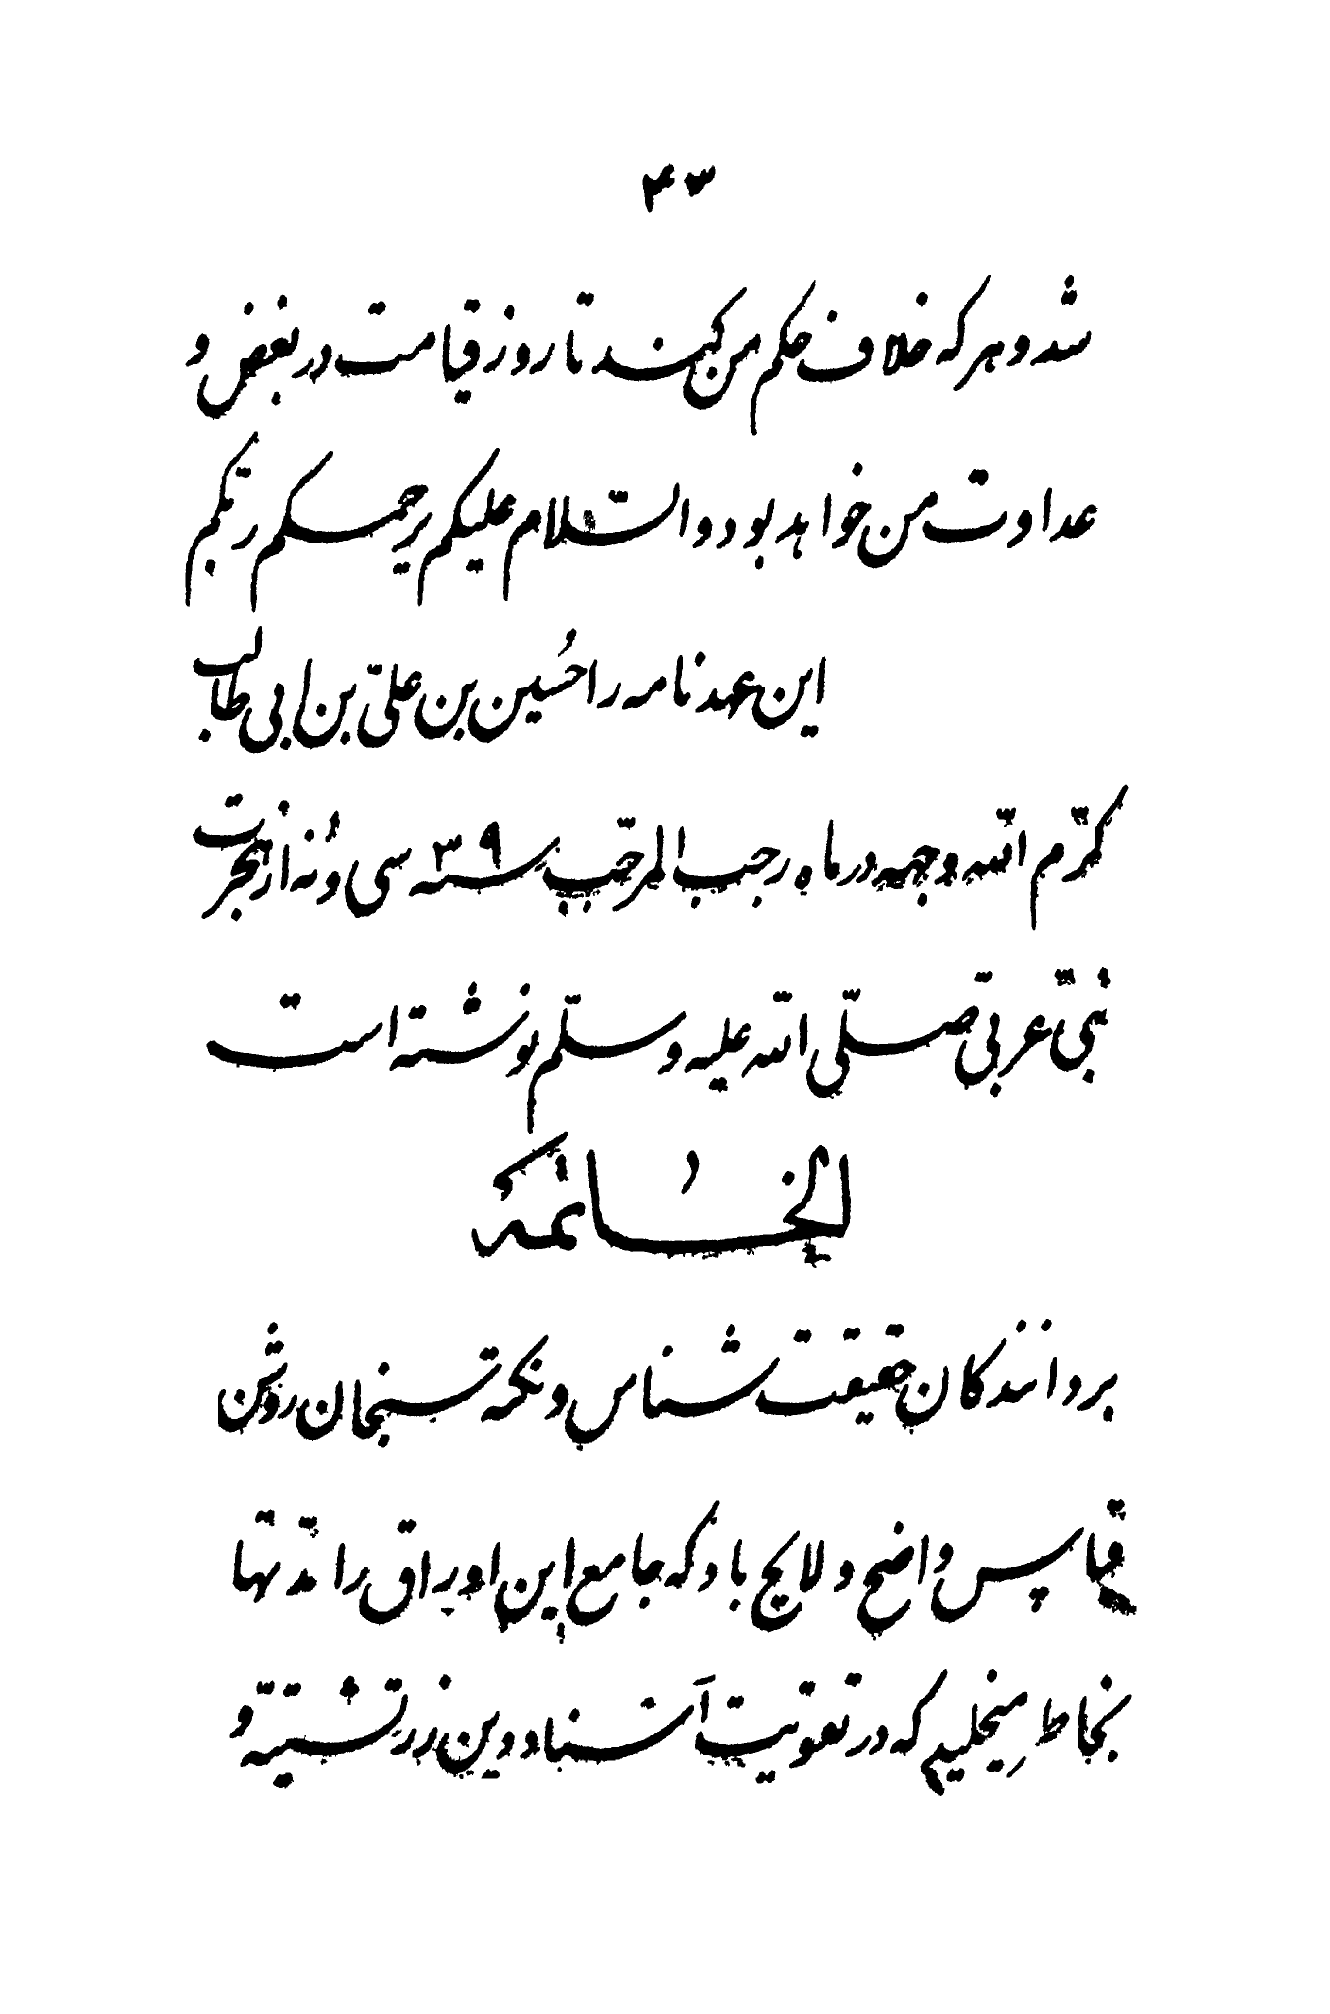 ۴۳
شد و هر که خلاف حکم من کیند تا روز قیامت در بغض و
عداوت من خواهد بود و السّلام علیکم یرحمکم ربّکم
این عهد نامه را حُسین بن علیّ بن ابی طالب
کرّم اللّه وجهه در ماه رجب المرجّب سنه ۳۹ سی و نُه از هجرت
نبیّ عربی صلّی اللّه علیه و سلّم نوشته است
الخاتمه
بر دانندکان حقیقت شناس و نکته سنجان روشن
قیاس واضح و لایح باد که جامع این اوراق را مدّتها
بخاطر میخلید که در تقویت آشنا و دین زرتشتیه و